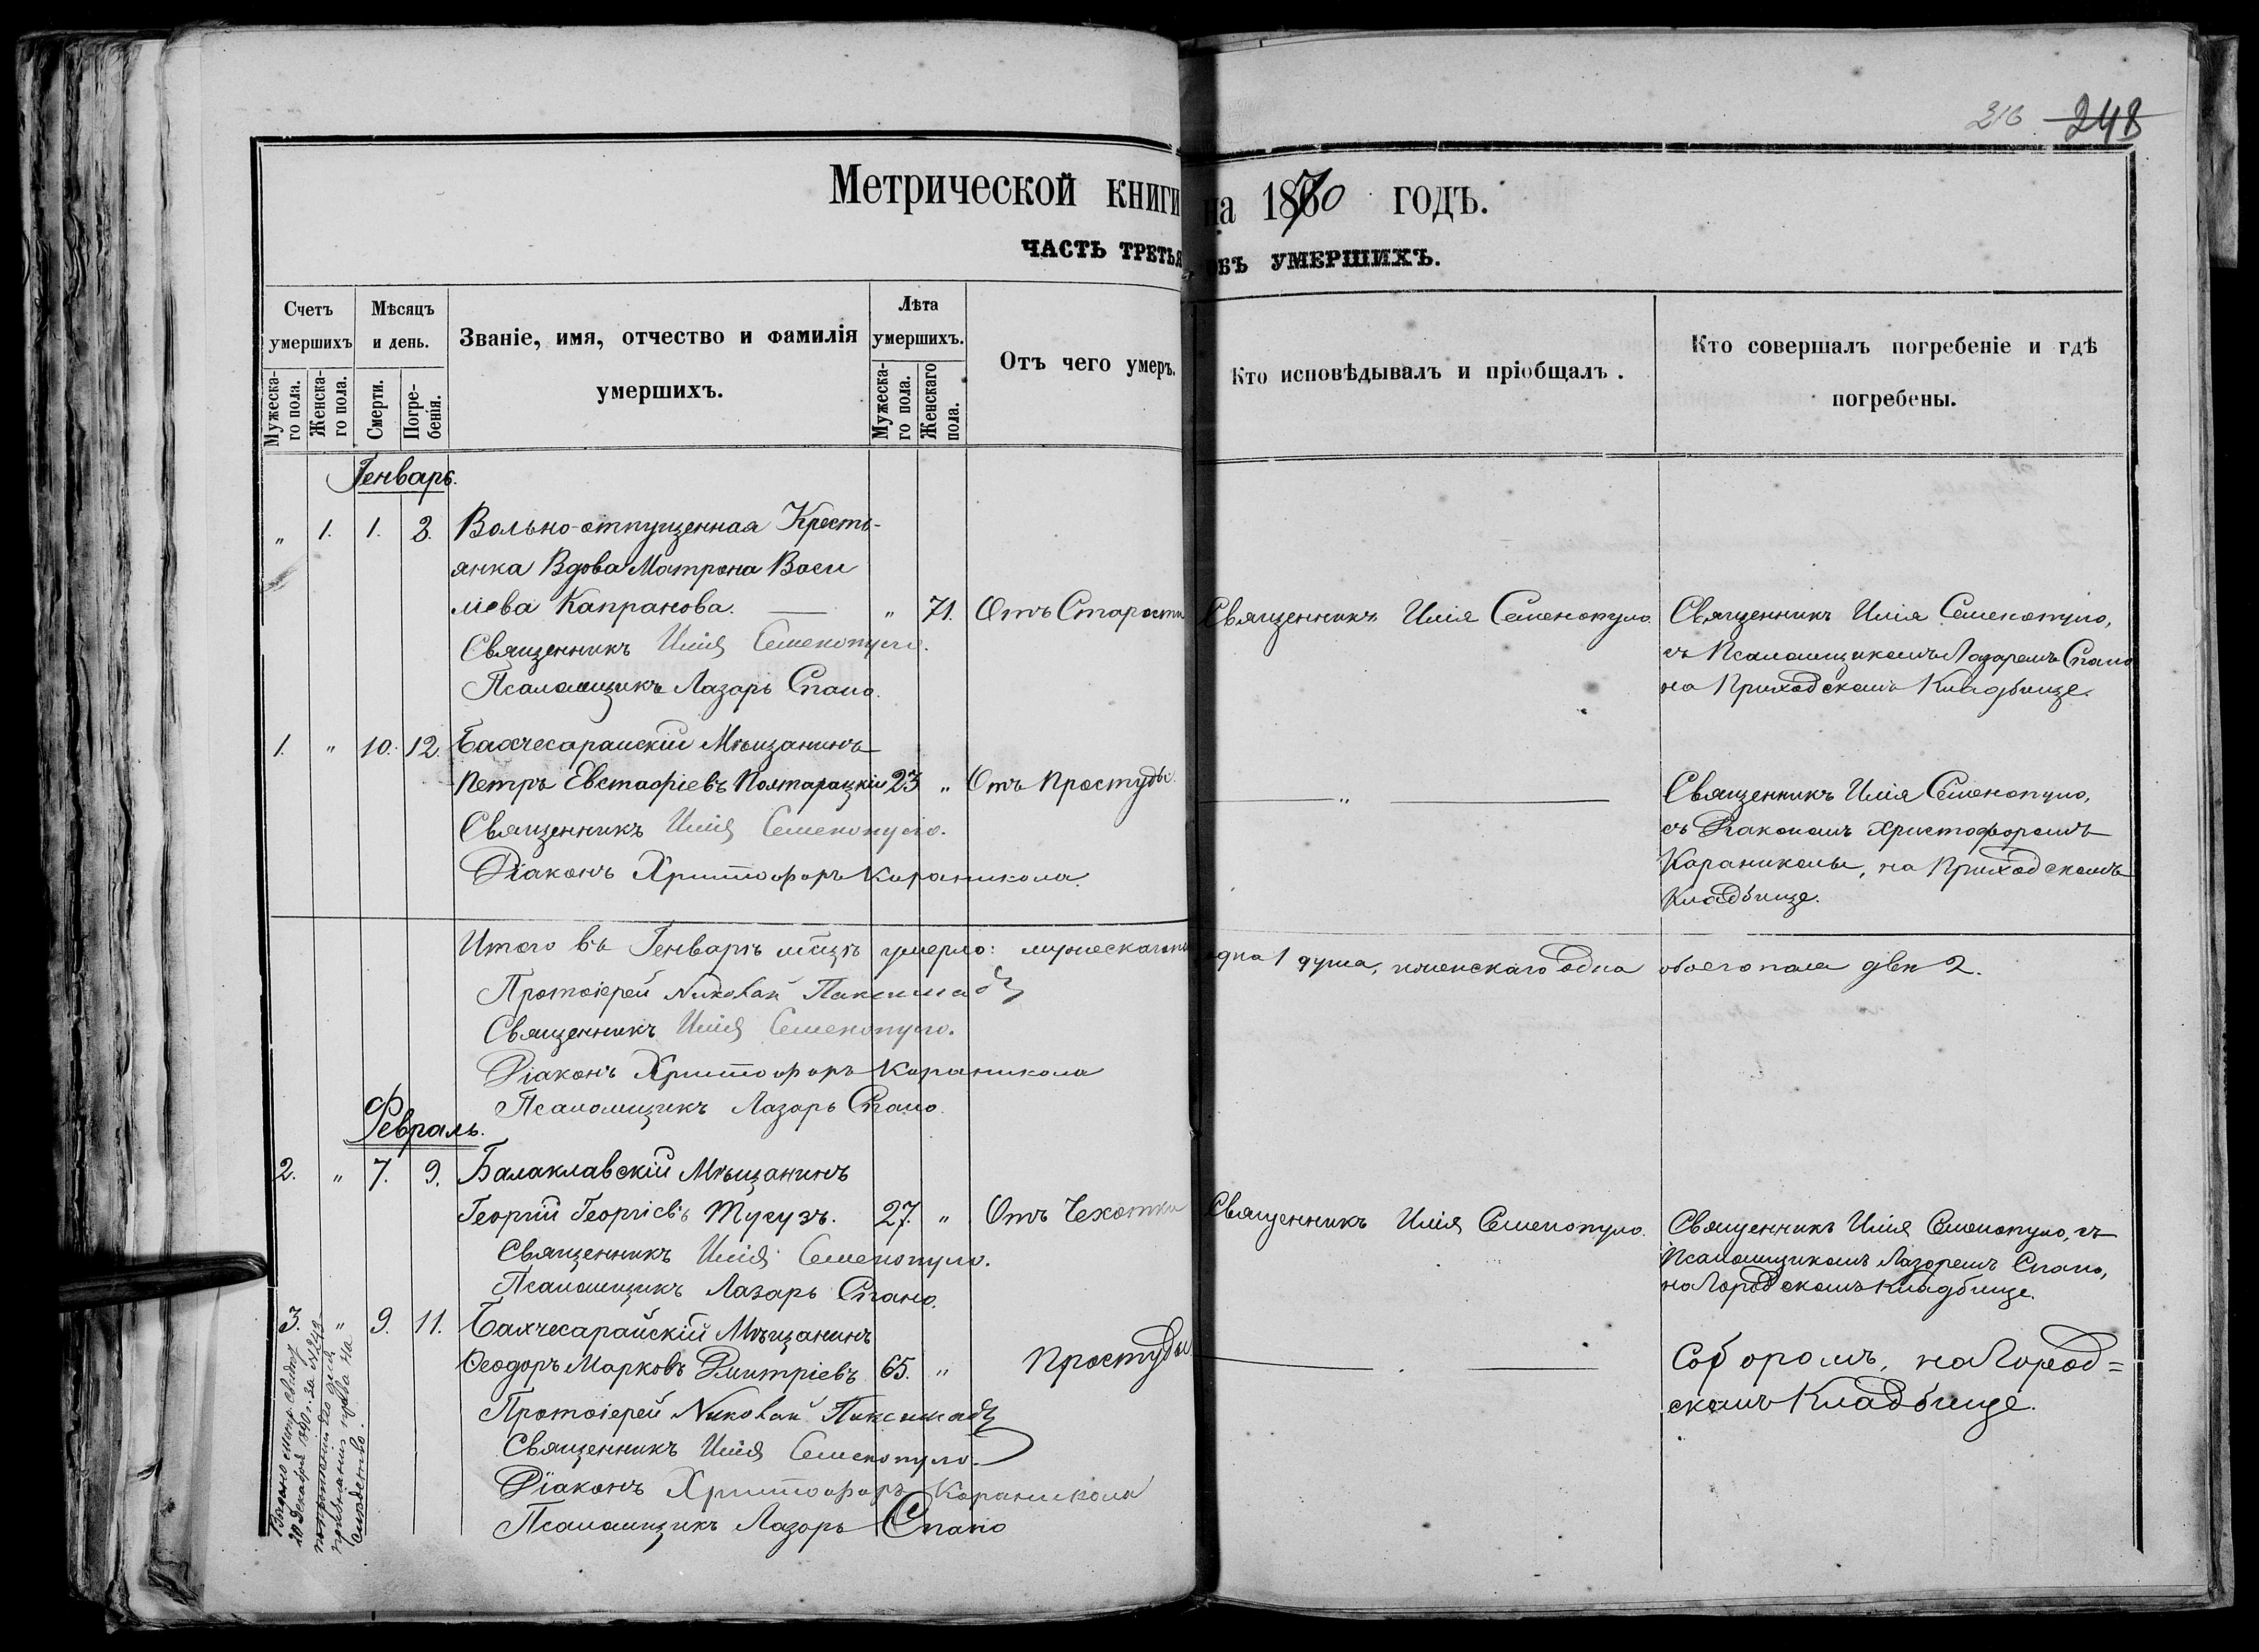 216 248
Метрической книги на 1870 годъ.
ЧАСТЬ ТРЕТЬЯ ОБЪ УМЕРШИХЪ.
Счетъ умершихъ
Мужеска-го пола.
Женска-го пола.
Мѣсяцъ и день.
Смерти.
Погре-бенія.
Званіе, имя, отчество и фамилія умершихъ.
Лѣта умершихъ.
Мужеска-го пола.
Женскаго пола.
Отъ чего умеръ.
Кто исповѣдывалъ и пріобщалъ.
Кто совершалъ погребеніе и гдѣ погребены.
Генварь.
„ 1. 1. 3. Вольно-отпущенная Кресть-
янка Вдова Матрона Васи
лiева Капранова. — „ 71. Отъ Старости Священникъ Илія Семенопуло. Священникъ Илія Семенопуло,
Священникъ Илія Семенопуло. съ Псаломщикомъ Лазаремъ Спано
Псаломщикъ Лазарь Спано. на Приходскомъ Кладбище.
1. „ 10. 12. Бахчесарайскій Мѣщанинъ
Петръ Евстафіевъ Полтарацкій 23 „ Отъ Простуды. — „ — Священникъ Илія Семенопуло,
Священникъ Илія Семенопуло. съ Діакономъ Христофоромъ
Діаконъ Христофоръ Караникола. Караниколы, на Приходскомъ
Кладбище.
Итого въ Генварѣ мѣцѣ умерло: мужескаго одна 1 душа, женскаго одна обоего пола двѣ 2.
Протоіерей Николай Паксимади
Священникъ Илія Семенопуло.
Діаконъ Христофоръ Караникола
Псаломщикъ Лазарь Спано.
Февраль.
2. „ 7. 9. Балаклавскій Мѣщанинъ
Георгій Георгіевъ Тугузъ. 27. „ Отъ Чахотки Священникъ Илія Семенопуло. Священникъ Илія Семенопуло, съ
Священникъ Илія Семенопуло. Псаломщикомъ Лазаремъ Спано,
Псаломщикъ Лазарь Спано. на Городскомъ кладбище.
3. „ 9. 11. Бахчесарайскій Мѣщанинъ
Ѳеодоръ Марковъ Дмитріевъ 65. „ Простуды — . — Соборомъ, на Город=
Протоіерей Николай Паксимади скомъ Кладбище.
Священникъ Илія Семенопуло.
Діаконъ Христофоръ Караникола
Псаломщикъ Лазарь Спано
Выдано метр. свидѣт.
20 Декабря 1890 г. за № 243
права на